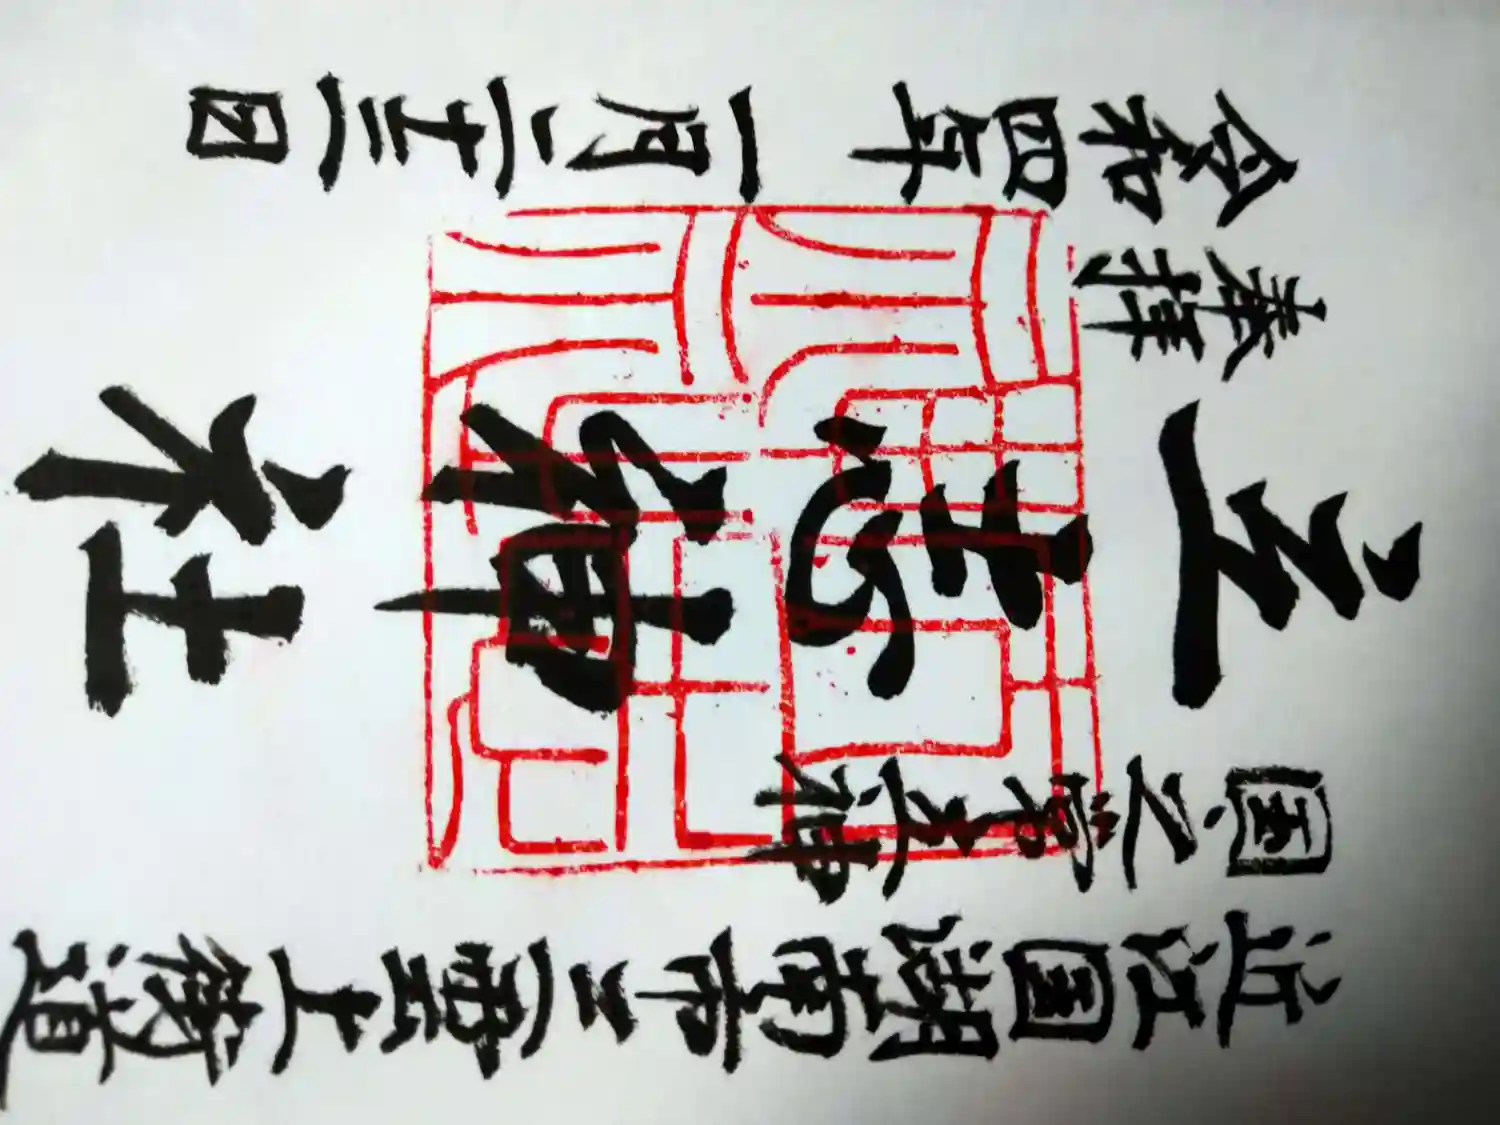 近江国湖南市三雲上道
国之常立神
立志神社
奉拝
令和四年一月二十三日